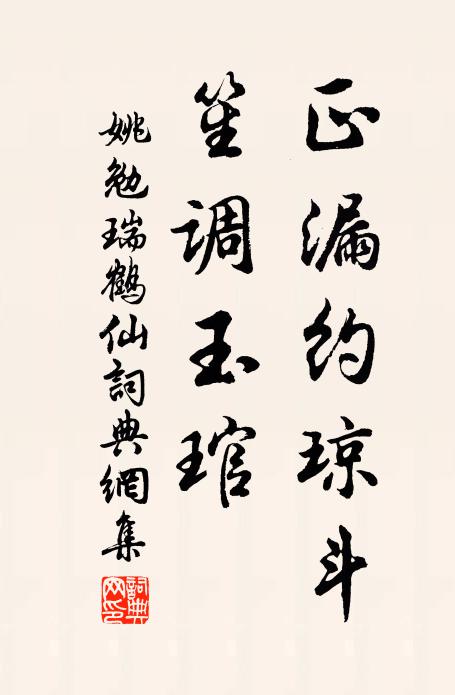 正漏约琼斗
笙调玉琯
姚勉瑞鶴仙詞典網集
詞典网印